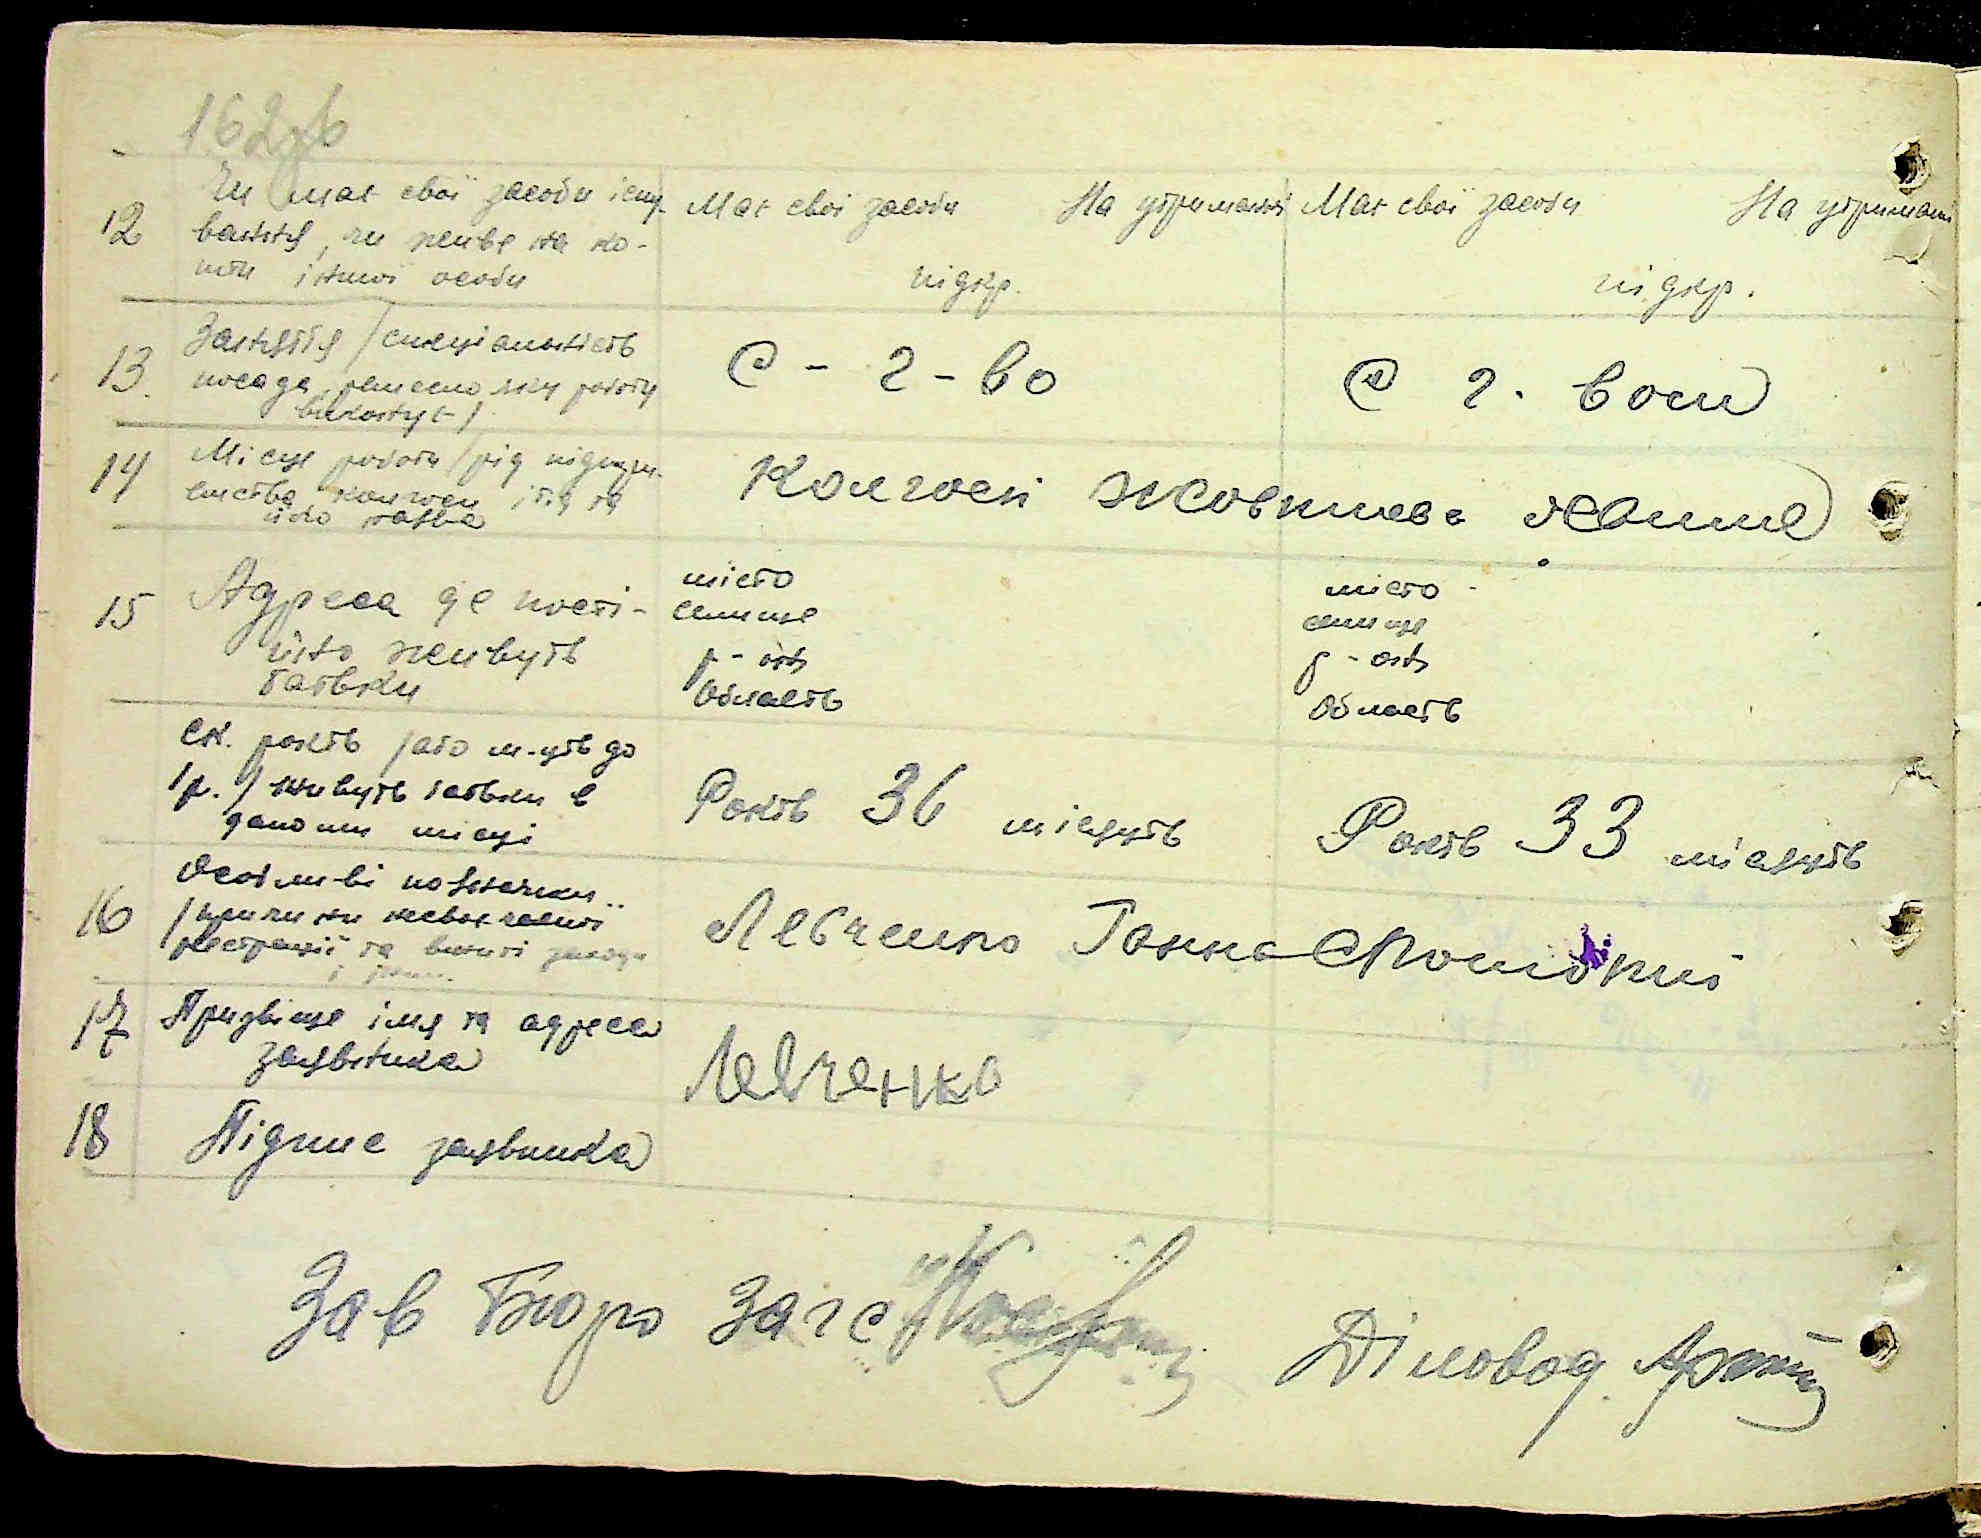 162
12 Чи має свої засоби існу-
вання, чи живе на ко-
шти іншої особи
Має свої засоби На утриманні
підкр.
Має свої засоби На утриманні
підкр.
13. Заняття /спеціальність
посада, ремесло, яку роботу
виконує/
С-г-во
С г. вом
14 Місце роботи /рід підпри-
ємства, колгосп і т.д. та
його назва
Колгосп
15 Адреса де пості-
йно живуть
батьки
місто
селище
р-он
область
місто
селище
р-он
Область
Ск. років /або м-ців до
1 р./ живуть батьки в
даному місці
Років 36 місяців
Років 33 місяців
16 Особливі позначки
/причини невчасної
реєстрації та вжиті заходи
Левченко Ганна
17 Призвіще імя та адреса
заявника
Левченко
18 Підпис заявника
Зав Бюро Загс
Діловод.